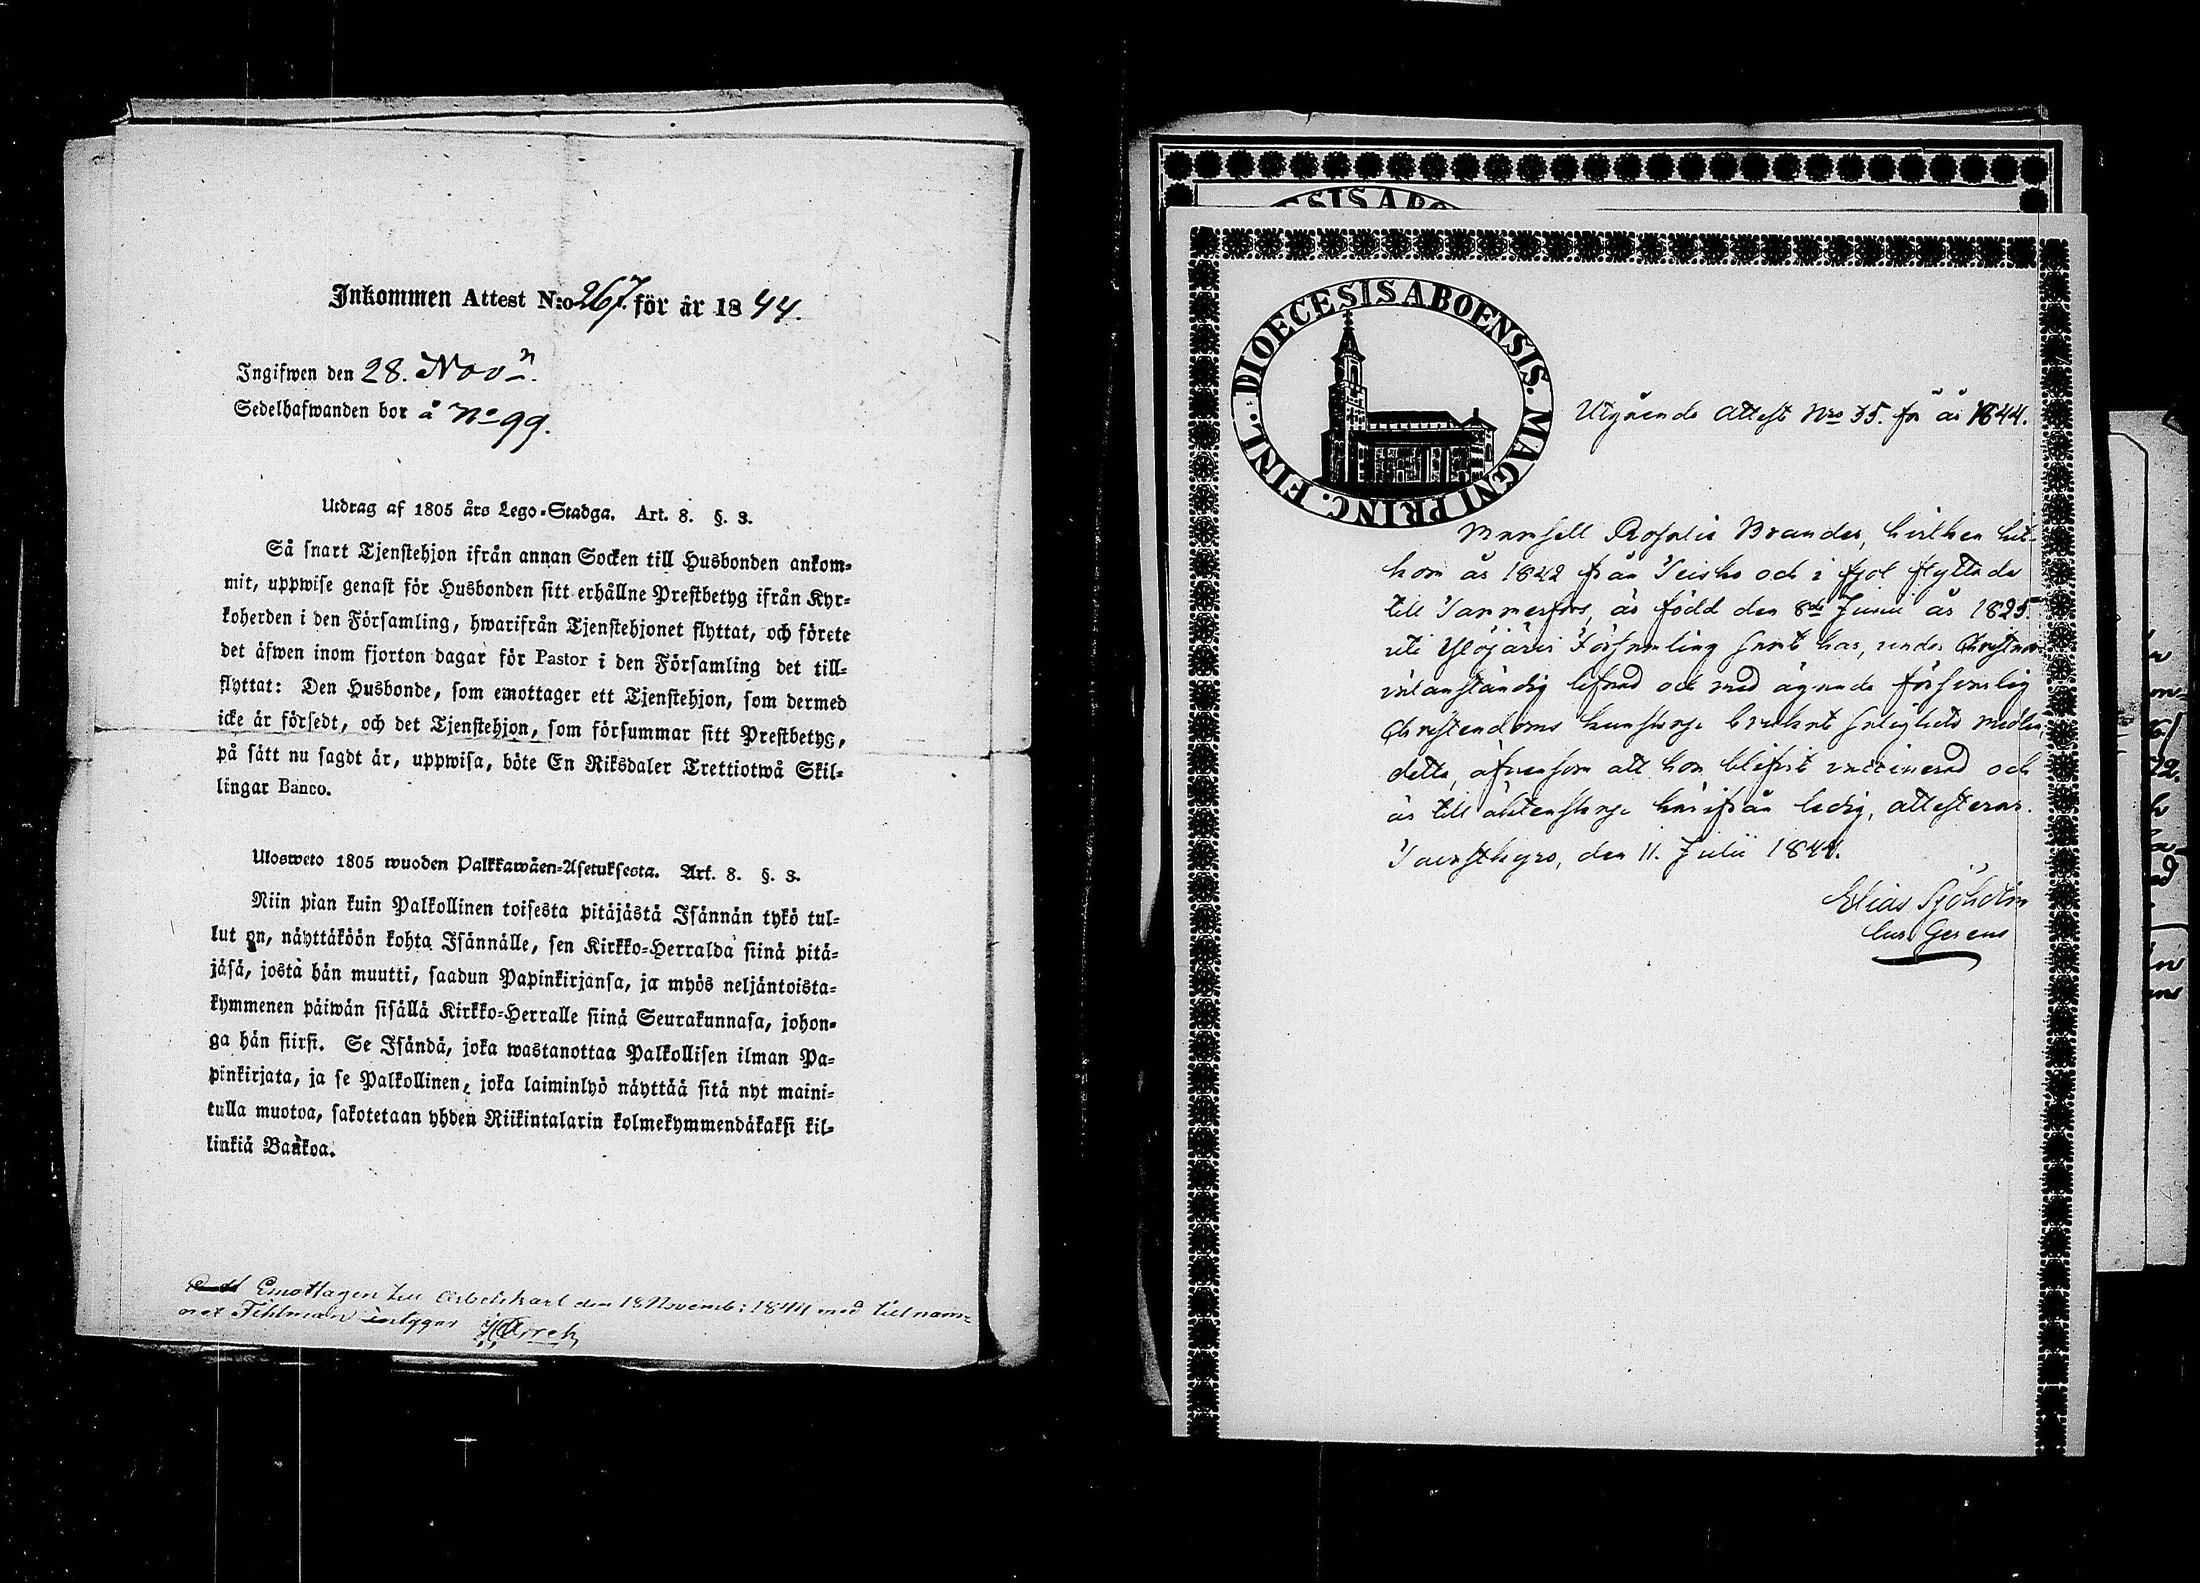 Inkommen Attest N:o 267. för år 1844.
Ingifwen den 28. Nov:r.
Sedelhafwanden bor å No 99.
Utdrag af 1805 års Lego-Stadga. Art. 8. §. 3.
Så snart Tjenstehjon ifrån annan Socken till Husbonden ankom-
mit, uppwise genast för Husbonden sitt erhållne Prestbetyg ifrån Kyr-
koherden i den Församling, hwarifrån Tjenstehjonet flyttat, och förete
det äfwen inom fjorton dagar för Pastor i den Församling det till-
flyttat: Den Husbonde, som emottager ett Tjenstehjon, som dermed
icke är försedt, och det Tjenstehjon, som försummar sitt Prestbetyg,
på sätt nu sagdt är, uppwisa, böte En Riksdaler Trettiotwå Skil-
lingar Banco.
Ulosweto 1805 wuoden Palkkawäen-Asetuksesta. Art. 8. §. 3.
Niin pian kuin Palkollinen toisesta pitäjästä Isännän tykö tul-
lut on, näyttäköön kohta Isännälle, sen Kirkko-Herralda siinä pitä-
jäsä, josta hän muutti, saadun Papinkirjansa, ja myös neljäntoista-
kymmenen päiwän sisällä Kirkko-Herralle siinä Seurakunnasa, johon-
ga hän siirsi. Se Isändä, joka wastanottaa Palkollisen ilman Pa-
pinkirjata, ja se Palkollinen, joka laiminlyö näyttää sitä nyt maini-
tulla muotoa, sakotetaan yhden Riikintalarin kolmekymmendäkaksi kil-
linkiä Bankoa.
Emottagen till Arbetskarl den 18 Novemb: 1844 med tillnam-
net Tihlman intygar
DIOECESIS ABO
DIOECESIS ABOENSIS. MAGNI PRINC. FINL.
Utgående Attest Nro 35. för år 1844.
Mamsell Rosalie Brander, hvilken hit-
kom år 1842 från Teisko och i fjol flyttade
till Tammerfors, är född den 8de Junii år 1825
uti Ylöjärvi Församling samt har, under
välanständig lefnad och med ägande försvarlig
Christendoms kunskap brukat salighets medlen,
detta, äfvensom att hon blifvit vaccinerad och
är till äktenskap härifrån ledig, attesterar.
Tavastkyro, den 11. Julii 1844.
Elias Sjöholm